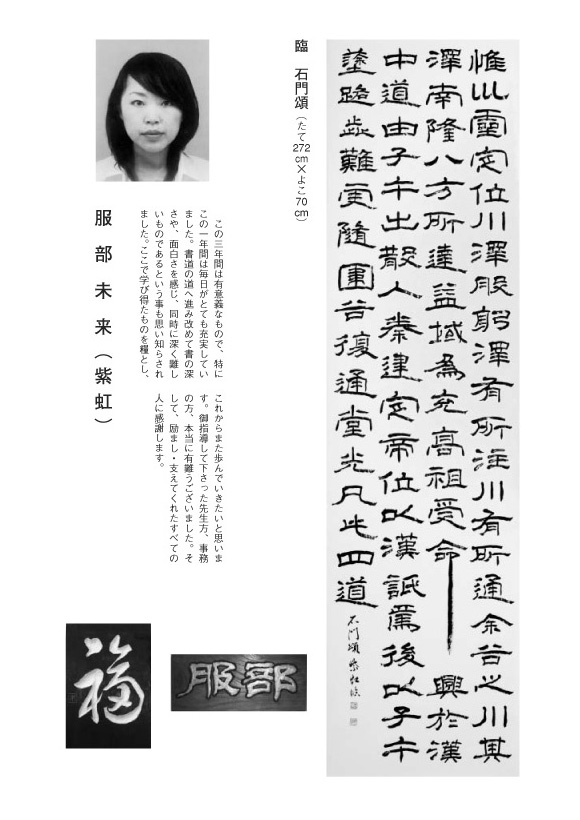 惟巛靈定位川澤股躬澤有所注川有所通余谷之川其
澤南隆八方所達益域為充高祖受命 興於漢
中道由子午出散入秦建定帝位以漢詆焉後以子午
塗路歰難更隨圍谷復通堂光凡此四道
石門頌 紫虹臨
臨 石門頌（たて272cm×よこ70cm）
この三年間は有意義なもので、特に
この一年間は毎日がとても充実してい
ました。書道の道へ進み改めて書の深
さや、面白さを感じ、同時に深く難し
いものであるという事も思い知らされ
ました。ここで学び得たものを糧とし、
これからまた歩んでいきたいと思いま
す。御指導して下さった先生方、事務
の方、本当に有難うございました。そ
して、励まし・支えてくれたすべての
人に感謝します。
服部未来（紫虹）
服部
福